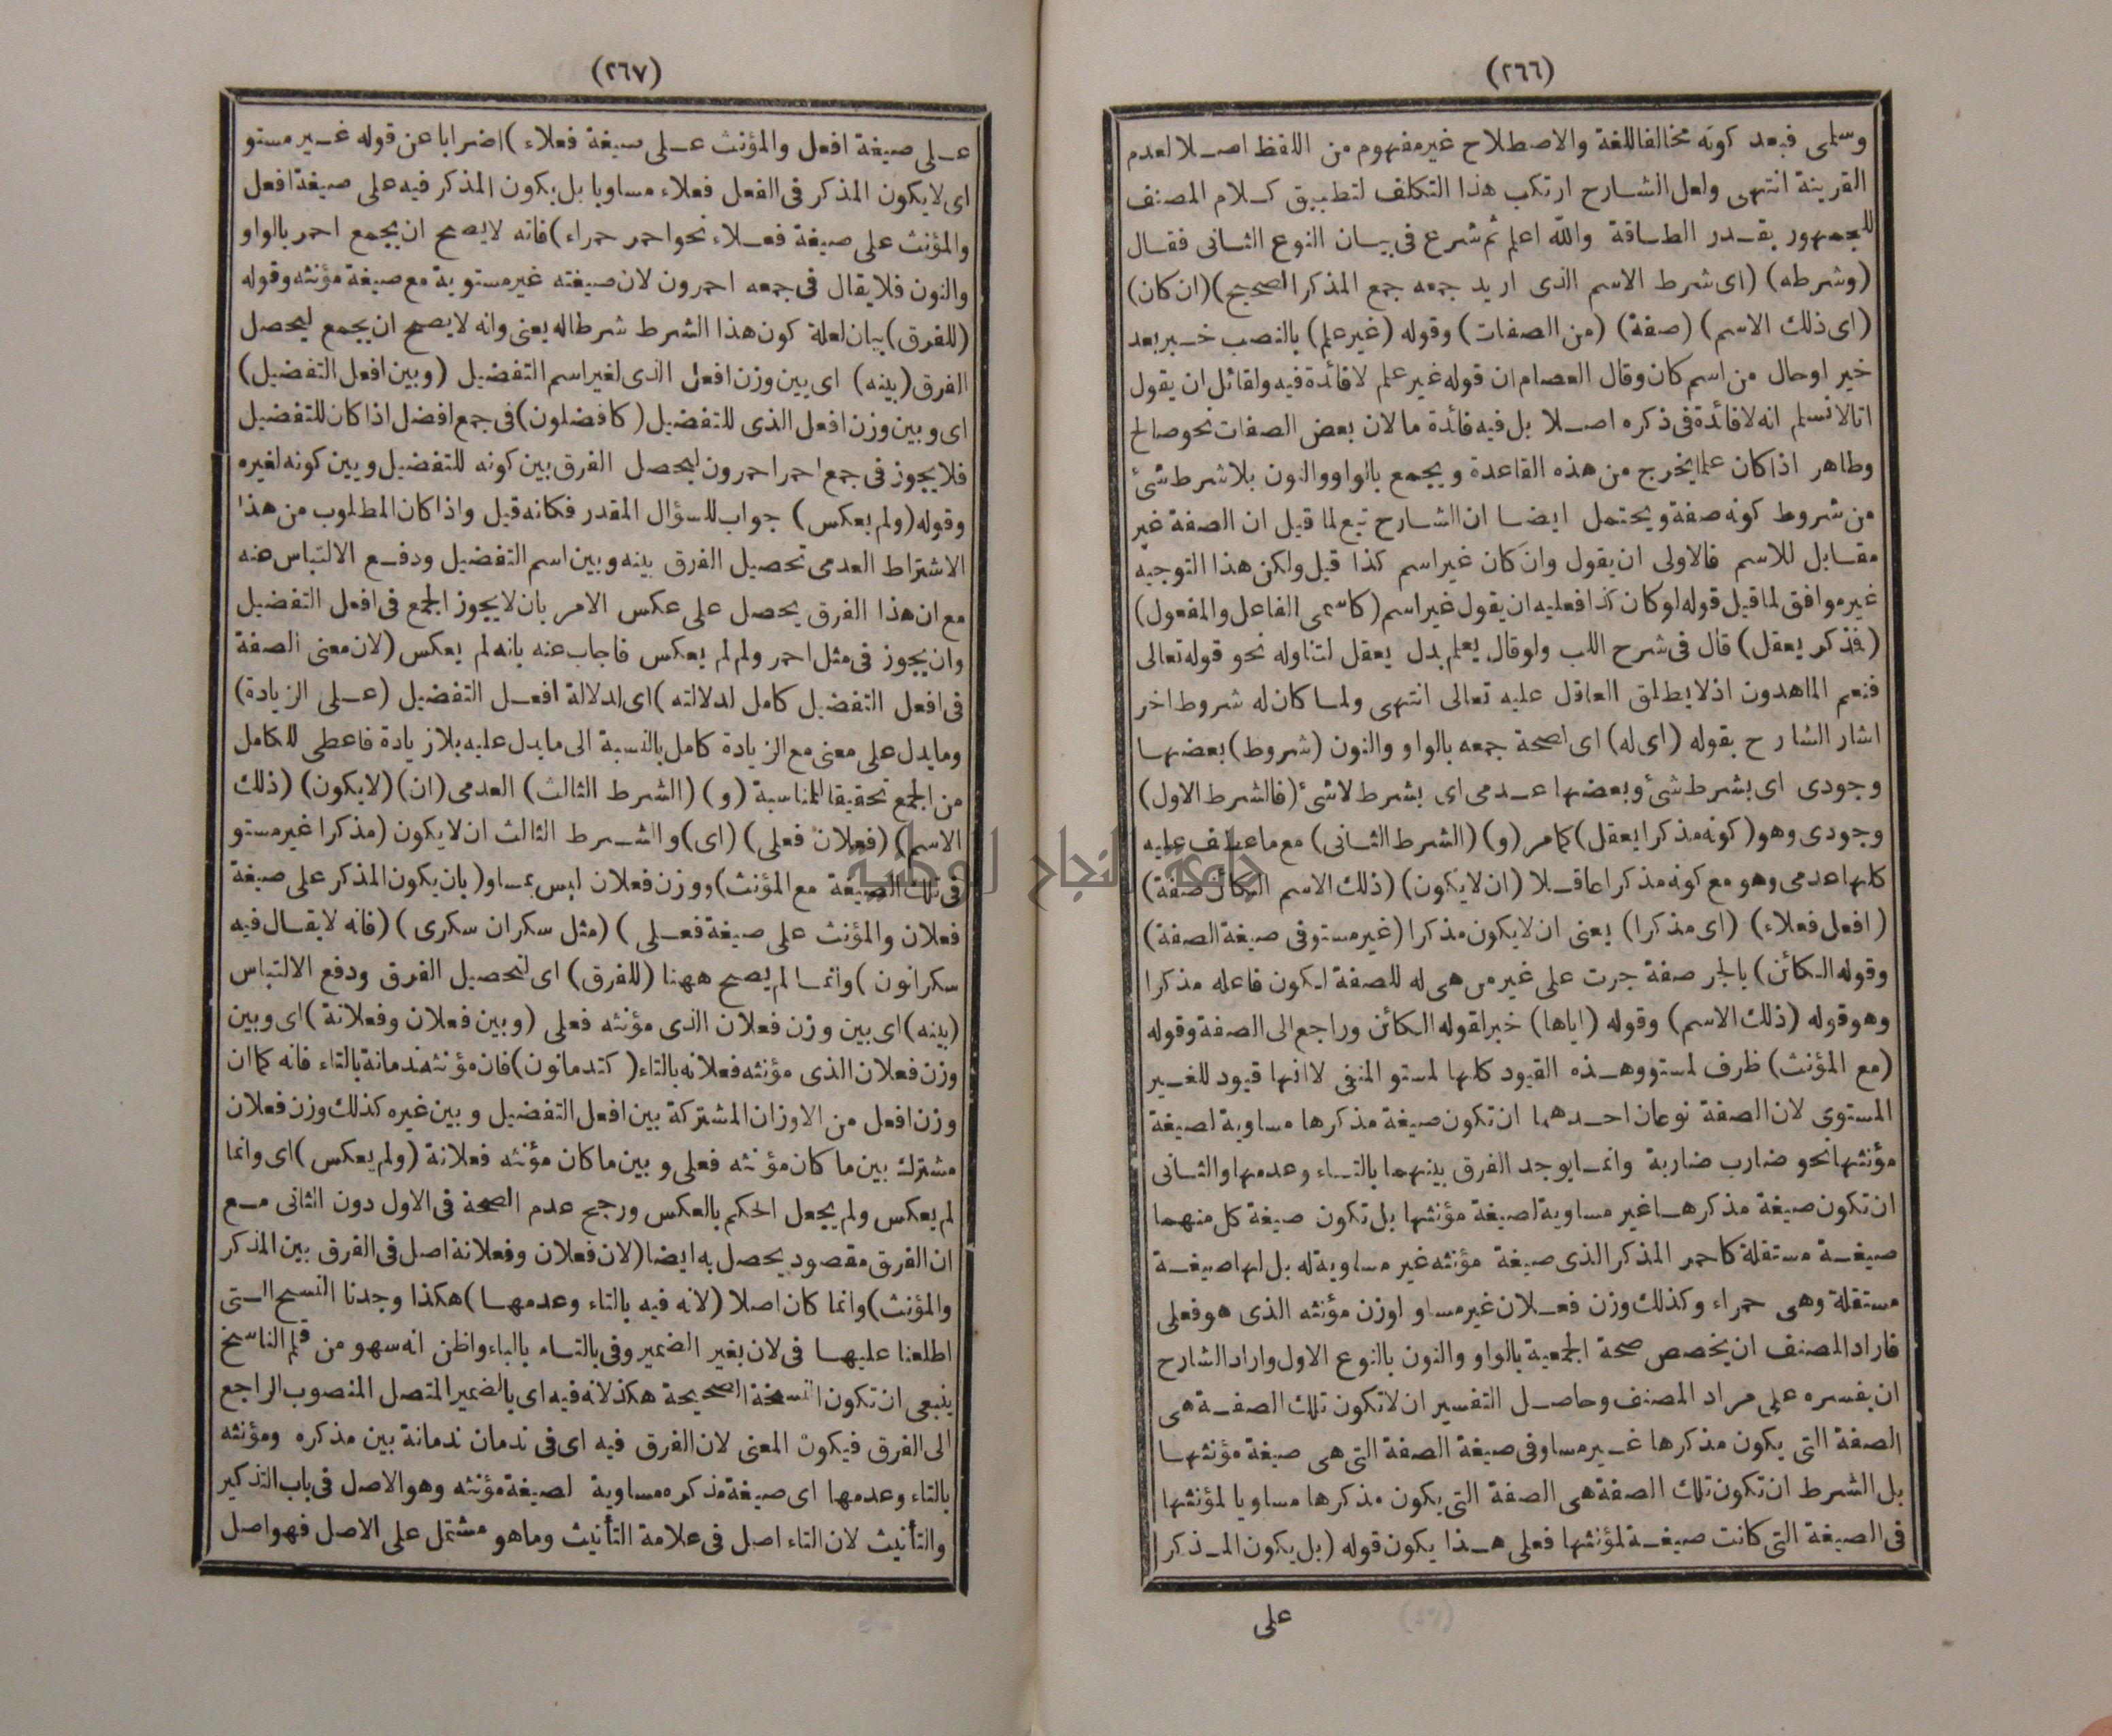 (٢٦٦)
وسلمى فبعد كونه مخالفا للغة والاصطلاح غير مفهوم من اللفظ اصلا لعدم
القرينة انتهى ولعل الشارح ارتكب هذا التكلف لتطبيق كلام المصنف
للجمهور بقدر الطاقة والله اعلم ثم شرع فى بيان النوع الثانى فقال
(وشرطه) (اى شرط الاسم الذى اريد جمعه جمع المذكر الصحيح) (ان كان)
(اى ذلك الاسم) (صفة) (من الصفات) وقوله (غير علم) بالنصب خبر بعد
خبر اوحال من اسم كان وقال العصام ان قوله غير علم لا فائدة فيه ولقائل ان يقول
انا لا نسلم انه لا فائدة فى ذكره اصلا بل فيه فائدة ما لان بعض الصفات نحو صالح
وطاهر اذا كان علما يخرج من هذه القاعدة ويجمع بالواو والنون بلا شرط شئ
من شروط كونه صفة ويحتمل ايضا ان الشارح تبع لما قيل ان الصفة غير
مقابل للاسم فالاولى ان يقول وان كان غير اسم كذا قيل ولكن هذا التوجيه
غير موافق لما قيل قوله لو كان كذا فعليه ان يقول غير اسم (كاسمى الفاعل والمفعول)
(فذكر يعقل) قال فى شرح اللب ولو قال يعلم بدل يعقل لتناوله نحو قوله تعالى
فنعم الماهدون اذ لا يطلق العاقل عليه تعالى انتهى ولما كان له شروط اخر
اشار الشارح بقوله (اى له) اى لصحة جمعه بالواو والنون (شروط) بعضها
وجودى اى بشرط شئ وبعضها عدمى اى بشرط لا شئ (فالشرط الاول)
وجودى وهو (كونه مذكرا يعقل) كما مر (و) (الشرط الثانى) مع ما عطف عليه
كلها عدمى وهو مع كونه مذكرا عاقلا (ان لا يكون) (ذلك الاسم الكائن صفة)
(افعل فعلاء) (اى مذكرا) يعنى ان لا يكون مذكرا (غير مستو فى صيغة الصفة)
وقوله الكائن) بالجر صفة جرت على غير من هى له للصفة لكون فاعله مذكرا
وهو قوله (ذلك الاسم) وقوله (اياها) خبر لقوله الكائن وراجع الى الصفة وقوله
(مع المؤنث) ظرف لمستو وهذه القيود كلها لمستو المنفى لا انها قيود للغير
المستوى لان الصفة نوعان احدهما ان تكون صيغة مذكرها مساوية لصيغة
مؤنثها نحو ضارب ضاربة وانما يوجد الفرق بينهما بالتاء وعدمها والثانى
ان تكون صيغة مذكرها غير مساوية لصيغة مؤنثها بل تكون صيغة كل منهما
صيغة مستقلة كاحمر المذكر الذى صيغة مؤنثه غير مساوية له بل لها صيغة
مستقلة وهى حمراء وكذلك وزن فعلان غير مساو لوزن مؤنثه الذى هو فعلى
فاراد المصنف ان يخصص صحة الجمعية بالواو والنون بالنوع الاول واراد الشارح
ان يفسره على مراد المصنف وحاصل التفسير ان لا تكون تلك الصفة هى
الصفة التى يكون مذكرها غير مساو فى صيغة الصفة التى هى صيغة مؤنثها
بل الشرط ان تكون تلك الصفة هى الصفة التى يكون مذكرها مساويا لمؤنثها
فى الصيغة التى كانت صيغة لمؤنثها فعلى هذا يكون قوله (بل يكون المذكر
على
(٢٦٧)
على صيغة افعل والمؤنث على صيغة فعلاء) اضرابا عن قوله غير مستو
اى لا يكون المذكر فى افعل فعلاء مساويا بل يكون المذكر فيه على صيغة افعل
والمؤنث على صيغة فعلاء نحو احمر حمراء) فانه لا يصح ان يجمع احمر بالواو
والنون فلا يقال فى جمعه احمرون لان صيغته غير مستوية مع صيغة مؤنثه وقوله
(للفرق) بيان لعلة كون هذا الشرط شرطا له يعنى وانه لا يصح ان يجمع ليحصل
الفرق (بينه) اى بين وزن افعل الذى لغير اسم التفضيل (وبين افعل التفضيل)
اى وبين وزن افعل الذى للتفضيل (كافضلون) فى جمع افضل اذا كان للتفضيل
فلا يجوز فى جمع احمر احمرون ليحصل الفرق بين كونه للتفضيل وبين كونه لغيره
وقوله (ولم يعكس) جواب للسؤال المقدر فكانه قيل واذا كان المطلوب من هذا
الاشتراط العدمى تحصيل الفرق بينه وبين اسم التفضيل ودفع الالتباس عنه
مع ان هذا الفرق يحصل على عكس الامر بان لا يجوز الجمع فى افعل التفضيل
وان يجوز فى مثل احمر ولم لم يعكس فاجاب عنه بانه لم يعكس (لان معنى الصفة
فى افعل التفضيل كامل لدلالته) اى لدلالة افعل التفضيل (على الزيادة)
وما يدل على معنى مع الزيادة كامل بالنسبة الى ما يدل عليه بلا زيادة فاعطى للكامل
من الجمع تحقيقا للمناسبة (و) (الشرط الثالث) العدمى (ان) (لا يكون) (ذلك
الاسم) (فعلان فعلى) (اى) والشرط الثالث ان لا يكون (مذكرا غير مستو
فى تلك الصيغة مع المؤنث) ووزن فعلان ليس بمساو (بان يكون المذكر على صيغة
فعلان والمؤنث على صيغة فعلى) (مثل سكران سكرى) (فانه لا يقال فيه
سكرانون) وانما لم يصح ههنا (للفرق) اى لتحصيل الفرق ودفع الالتباس
(بينه) اى بين وزن فعلان الذى مؤنثه فعلى (وبين فعلان وفعلانة) اى وبين
وزن فعلان الذى مؤنثه فعلانه بالتاء (كندمانون) فان مؤنثه ندمانة بالتاء فانه كما ان
وزن افعل من الاوزان المشتركة بين افعل التفضيل وبين غيره كذلك وزن فعلان
مشترك بين ما كان مؤنثه فعلى وبين ما كان مؤنثه فعلانة (ولم يعكس) اى وانما
لم يعكس ولم يجعل الحكم بالعكس ورجح عدم الصحة فى الاول دون الثانى مع
ان الفرق مقصود يحصل به ايضا (لان فعلان وفعلانة اصل فى الفرق بين المذكر
والمؤنث) وانما كان اصلا (لانه فيه بالتاء وعدمها) هكذا وجدنا النسخ التى
اطلعنا عليها فى لان بغير الضمير وفى بالتاء بالباء واظن انه سهو من قلم الناسخ
ينبغى ان تكون النسخة الصحيحة هكذ لانه فيه اى بالضمير المتصل المنصوب الراجع
الى الفرق فيكون المعنى لان الفرق فيه اى فى ندمان ندمانة بين مذكره ومؤنثه
بالتاء وعدمها اى صيغة مذكره مساوية لصيغة مؤنثه وهو الاصل فى باب التذكير
والتأنيث لان التاء اصل فى علامة التأنيث وما هو مشتمل على الاصل فهو اصل
جامعة النجاح الوطنية